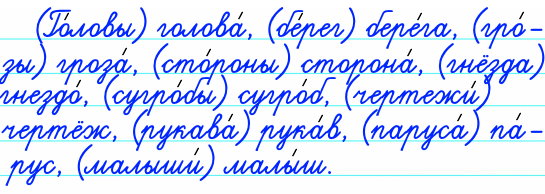 (Го́ловы) голова́, (бе́рег) бере́га, (гро́-
зы) гроза́, (сто́роны) сторона́, (гнёзда)
гнездо́, (сугро́бы) сугро́б, (чертежи́)
чертёж, (рукава́) рука́в, (паруса́) па́-
рус, (малыши́) малы́ш.